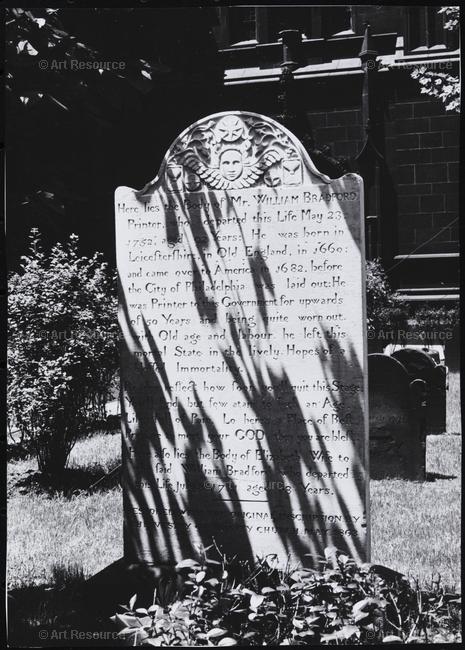 Here lies the Body of Mr. WILLIAM BRADFORD
Printer, who departed this Life May 23:
1752; aged years: He was born in
Leicestershire, in Old England, in 1660:
and came over to America in 1682, before
the City of Philadelphia was laid out: He
was Printer to this Government for upwards
of 50 Years and being quite worn out
with Old age and labour, he left this
mortal State in the lively Hopes of a
Immortality.
Reader, reflect how soon you'll quit this Stage
You'll find but few atain to such an Age
Life's full of Pain, Lo here's a Place of Rest
Prepare to meet your GOD, then you are blest
Here also lies the Body of Elizabeth Wife to
the said William Bradford who departed
this Life July aged Years.
ORIGINAL INSCRIPTION BY
THE VESTRY OF TRINITY CHURCH, MAY 1863
© Art Resource
© Art Resource
© Art Resource
© Art Resource
© Art Resource
© Art Resource
© Art Resource
© Art Resource
© Art Resource